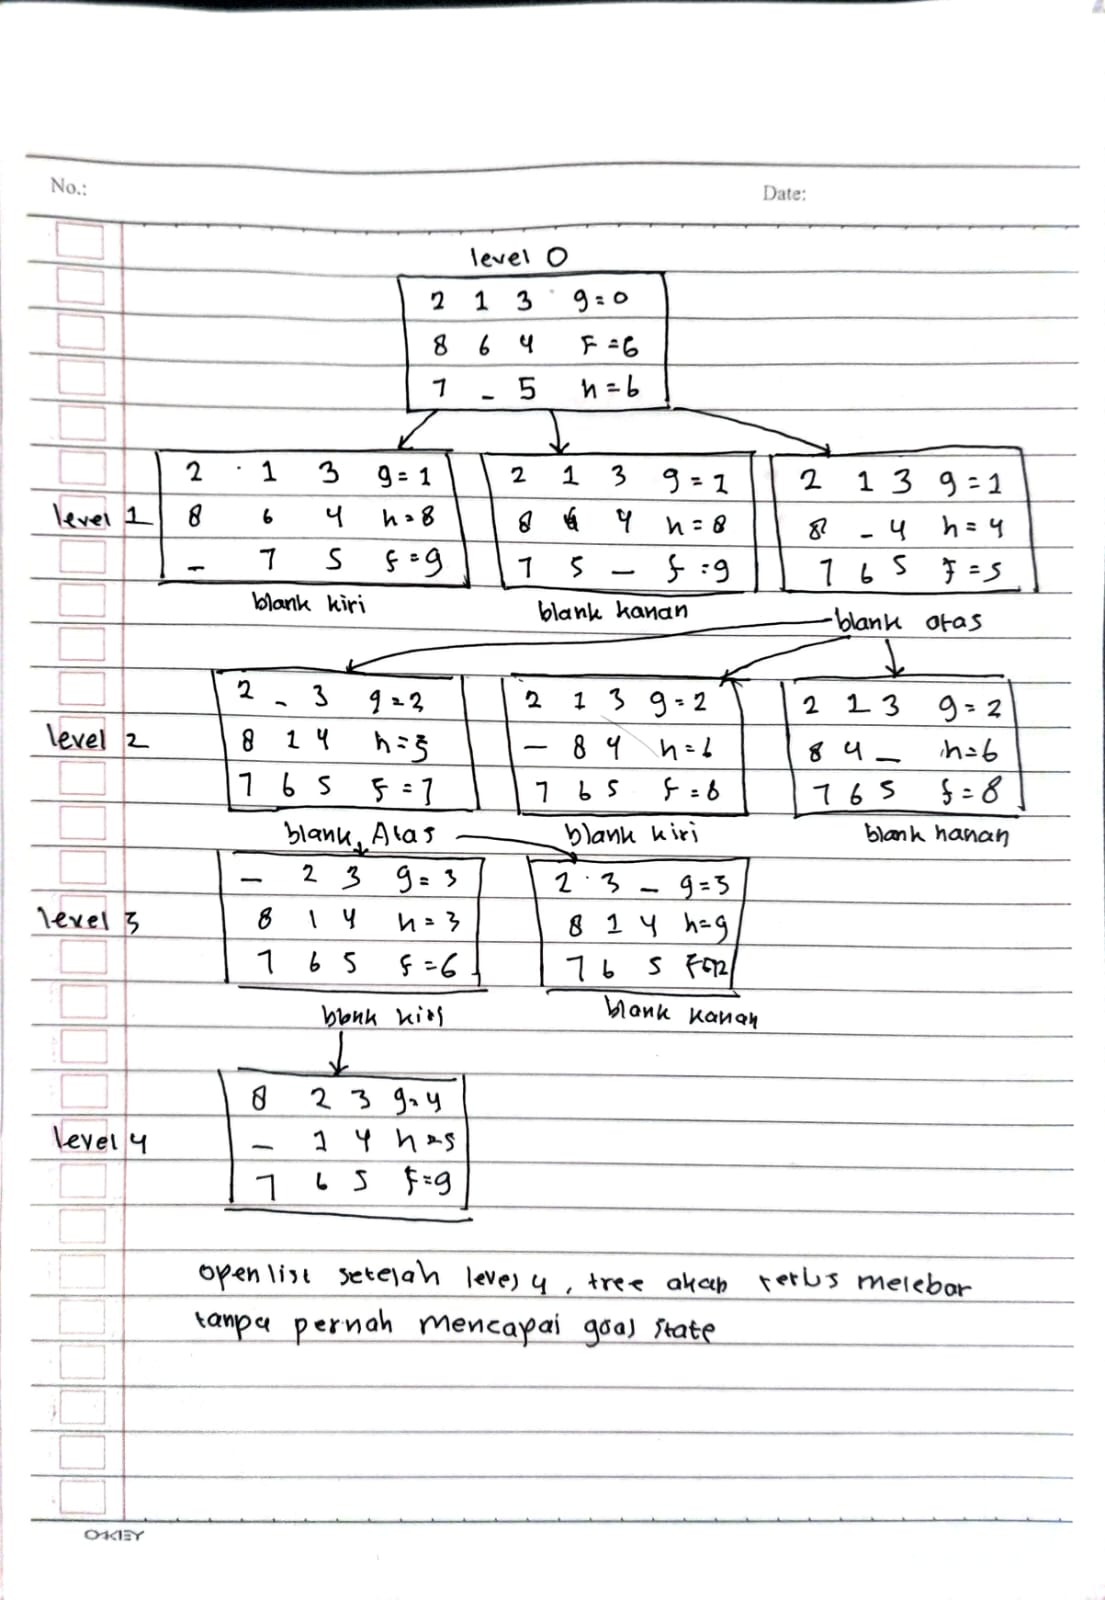 No.:
Date:
level 0
2 1 3 g=0
8 6 4 F=6
7 _ 5 h=6
level 1
2 1 3 g=1
8 6 4 h=8
_ 7 5 f=9
blank kiri
2 1 3 g=1
8 6 4 h=8
7 5 _ f=9
blank kanan
2 1 3 g=1
8 _ 4 h=4
7 6 5 f=5
blank atas
level 2
2 _ 3 g=2
8 1 4 h=5
7 6 5 f=7
blank Atas
2 1 3 g=2
_ 8 4 h=6
7 6 5 f=8
blank kiri
2 1 3 g=2
8 4 _ h=6
7 6 5 f=8
blank kanan
level 3
_ 2 3 g=3
8 1 4 h=3
7 6 5 f=6
blank kiri
2 3 _ g=3
8 1 4 h=9
7 6 5
blank kanan
level 4
8 2 3 g=4
_ 1 4 h=5
7 6 5 f=9
open list setelah level 4, tree akan terus melebar
tanpa pernah mencapai goal state
OKEY